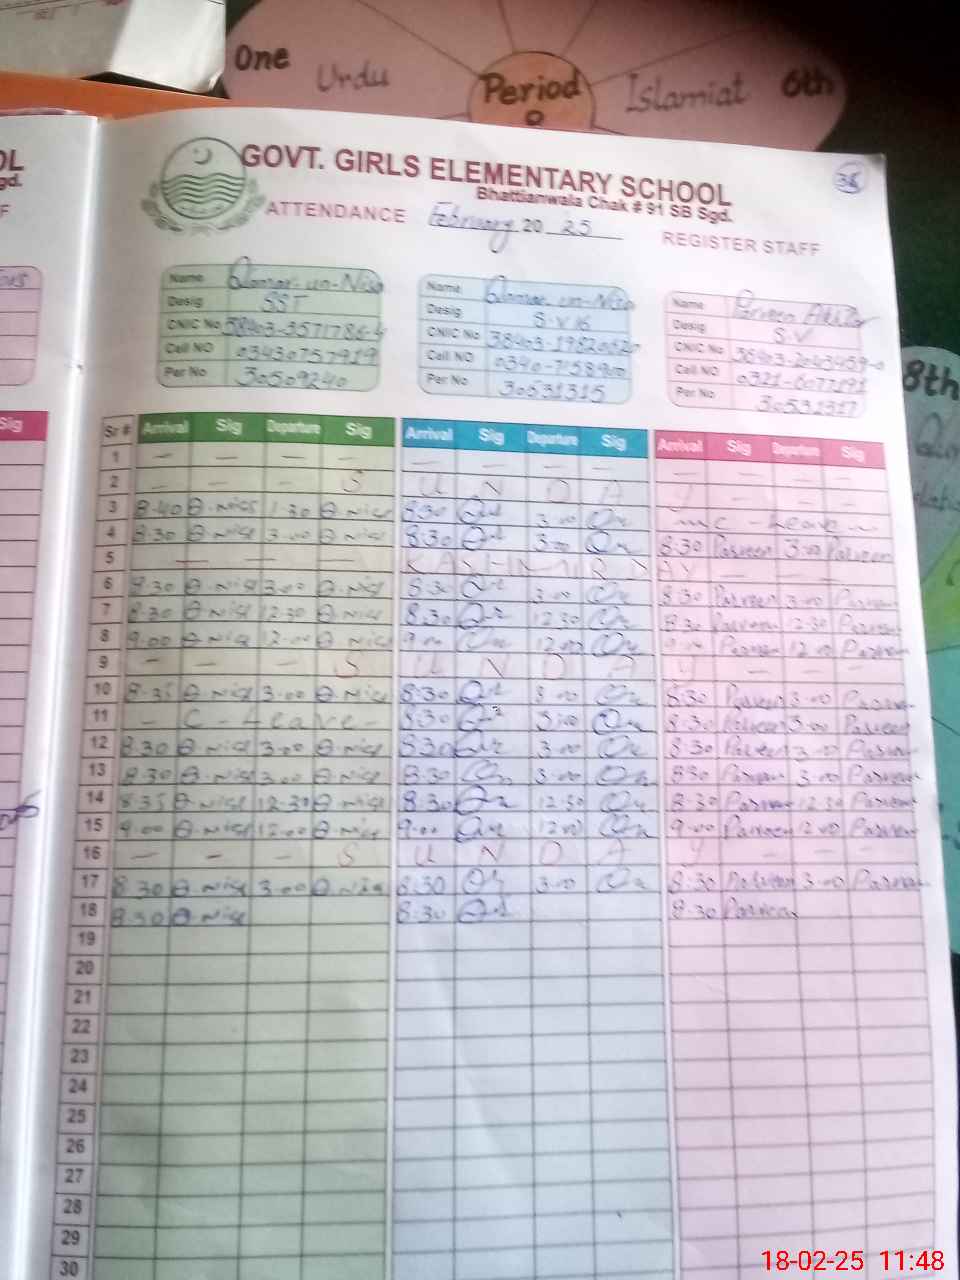 One Urdu Period 8 Islamiat 6th
GOVT. GIRLS ELEMENTARY SCHOOL
Bhattianwala Chak # 91 SB Sgd.
36
ATTENDANCE February 2025 REGISTER STAFF
Name Qamar-un-Nisa
Desig SST
CNIC No
Cell NO 03430757919
Per No 30509240
Name Qamar-un-Nisa
Desig S.V 16
CNIC No
Cell NO
Per No 30531315
Name Parveen Akhtar
Desig S.V
CNIC No
Cell NO 0321-6077191
Per No 30531317
8th
Sig
Sr # Arrival Sig Departure Sig Arrival Sig Departure Sig Arrival Sig Departure Sig
1 — — — — — — — — — — — —
2 — — — S U N D A Y — — —
3 8.40 Q.Nisa 1.30 Q.Nisa 8:30 3.00 — Leave —
4 8.30 Q.Nisa 3.00 Q.Nisa 8:30 3.00 8.30 Parveen 3.00 Parveen
5 — — — K A S H M I R D A Y — — —
6 8.30 Q.Nisa 3.00 Q.Nisa 8.30 3.00 8.30 Parveen 3.00 Parveen
7 8.30 Q.Nisa 12.30 Q.Nisa 8.30 12.30 8.30 Parveen 12.30 Parveen
8 9.00 Q.Nisa 12.00 Q.Nisa 9.00 12.00 9.00 Parveen 12.00 Parveen
9 — — — S U N D A Y — — —
10 8.35 Q.Nisa 3.00 Q.Nisa 8.30 3.00 8.30 Parveen 3.00 Parveen
11 — C - Leave - 8.30 3.00 8.30 Parveen 3.00 Parveen
12 8.30 Q.Nisa 3.00 Q.Nisa 8.30 3.00 8.30 Parveen 3.00 Parveen
13 8.30 Q.Nisa 3.00 Q.Nisa 8.30 3.00 8.30 Parveen 3.00 Parveen
14 8.35 Q.Nisa 12.30 Q.Nisa 8.30 12.30 8.30 Parveen 12.30 Parveen
15 9.00 Q.Nisa 12.00 Q.Nisa 9.00 12.00 9.00 Parveen 12.00 Parveen
16 — — — S U N D A Y — — —
17 8.30 Q.Nisa 3.00 Q.Nisa 8.30 3.00 8.30 Parveen 3.00 Parveen
18 8.30 Q.Nisa 8.30 8.30 Parveen
19
20
21
22
23
24
25
26
27
28
29
30
18-02-25 11:48